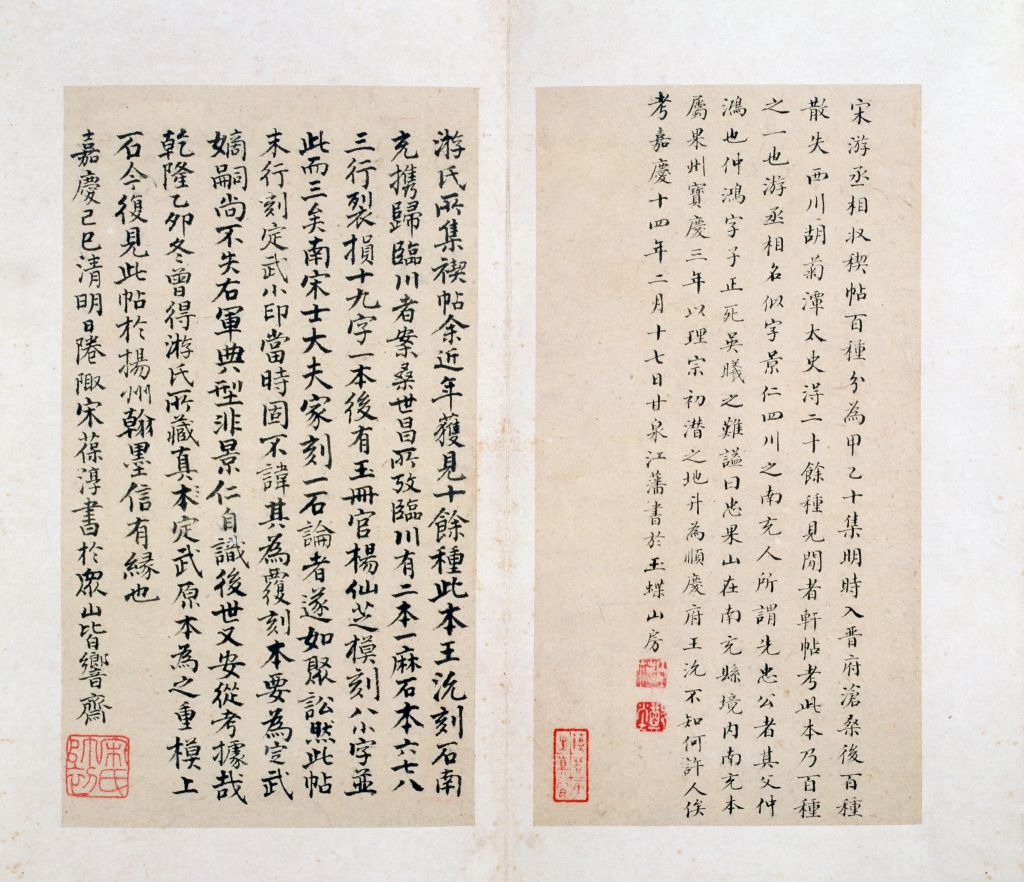 宋游丞相收稧帖百種分為甲乙十集明時入晋府滄桑後百種
散失西川胡菊潭太史得二十餘種見閒者軒帖考此本乃百種
之一也游丞相名似字景仁四川之南充人所謂先忠公者其父仲
鴻也仲鴻字子正死吳曦之難謚曰忠果山在南充縣境内南充本
屬果州寶慶三年以理宗初潜之地升為順慶府王沇不知何許人俟
考嘉慶十四年二月十七日甘泉江藩書於玉蝶山房
游氏所集禊帖余近年獲見十餘種此本王沇刻石南
充攜歸臨川者案桑世昌所攷臨川有二本一麻石本六七八
三行裂損十九字一本後有玉冊官楊仙芝模刻八小字並
此而三矣南宋士大夫家刻一石論者遂如聚訟然此帖
末行刻定武小印當時固不諱其為覆刻本要為定武
嫡嗣尚不失右軍典型非景仁自識後世又安從考據哉
乾隆乙卯冬曾得游氏所藏真本定武原本為之重模上
石今復見此帖於揚州翰墨信有緣也
嘉慶己巳清明日陭陬宋葆淳書於眾山皆響齋